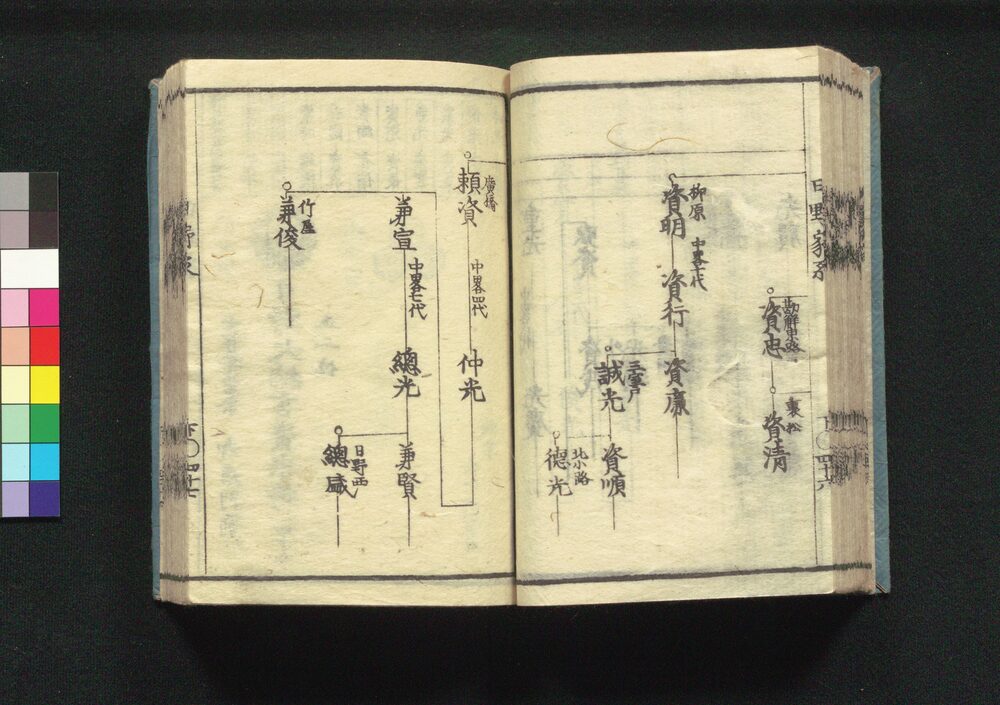 日野家系
下〇四十六
勘解由小路
資忠
裏松
資清
柳原
資明
中畧七代
資行
資廉
三室戸
誠光
資順
北小路
德光
廣橋
頼資
中畧四代
仲光
兼宣
中畧七代
總光
兼賢
日野西
總盛
竹屋
兼俊
下〇四十七